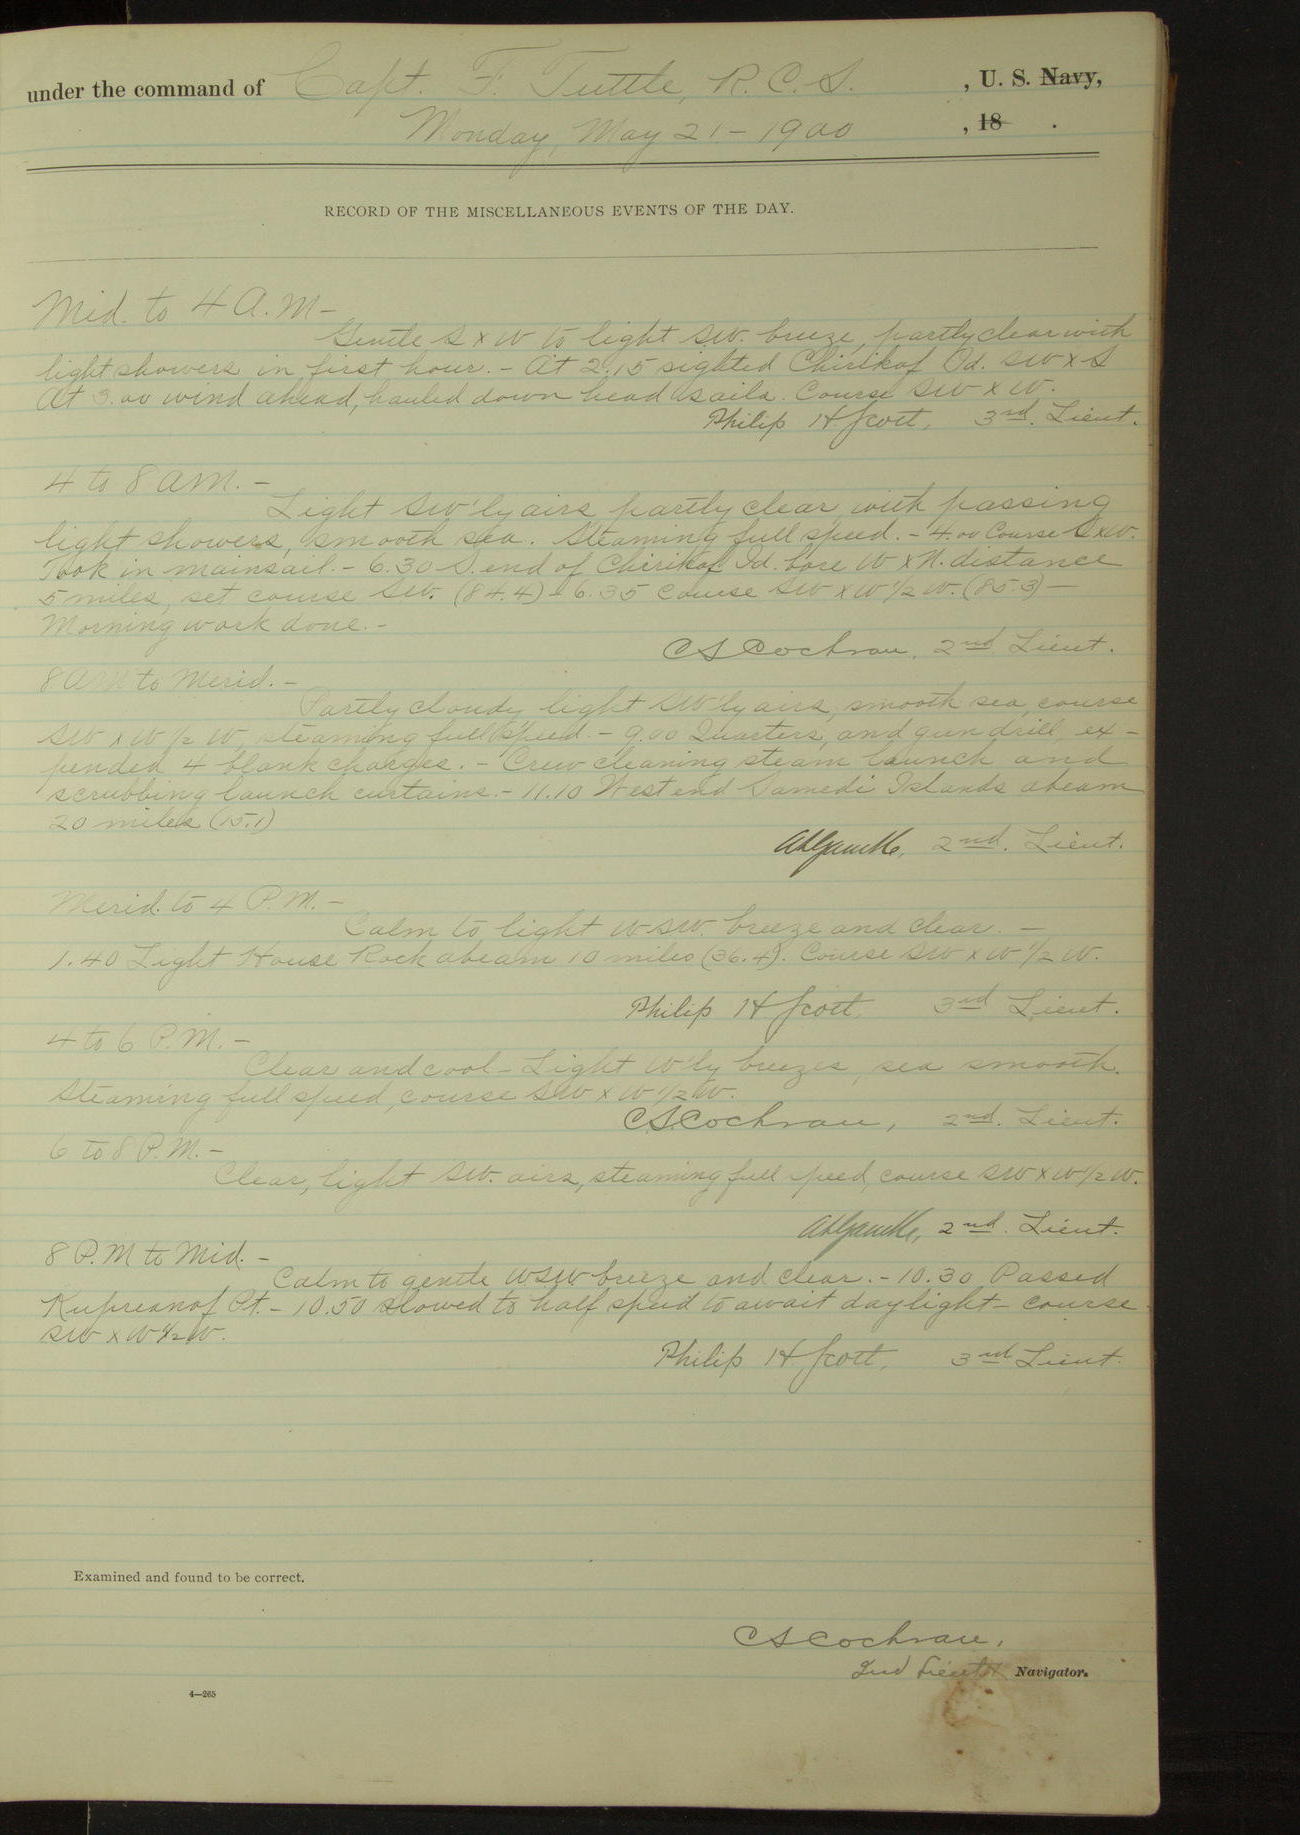 under the command of Capt. F. Tuttle, R. C. S. , U. S. Navy,
Monday, May 21 - 1900 , 18 .
RECORD OF THE MISCELLANEOUS EVENTS OF THE DAY.
Mid. to 4 A.M -
Gentle S x W to light SW. breeze, partly clear with
light showers in first hour. - At 2.15 sighted Chirikof Id. SW x S
At 3.00 wind ahead, hauled down head sails. Course SW x W.
Philip H Scott, 3rd. Lieut.
4 to 8 AM. -
Light SW'ly airs partly clear, with passing
light showers, smooth sea. Steaming full speed. - 4.00 Course SxW.
Took in mainsail. - 6.30 S. end of Chirikof Id. bore W x N. distance
5 miles, set course SW. (84.4) - 6.35 Course SW x W 1/2 W. (85.3) -
Morning work done. -
C S Cochran, 2nd Lieut.
8 AM to Merid. -
Partly cloudy, light SW'ly airs, smooth sea, course
SW x W 1/2 W, steaming full speed. - 9.00 Quarters, and gun drill, ex-
pended 4 blank charges. - Crew cleaning steam launch and
scrubbing launch curtains. - 11.10 West end Samedi Islands abeam
20 miles (15.1)
2nd. Lieut.
Merid. to 4 P.M. -
Calm to light WSW. breeze and clear. -
1.40 Light House Rock abeam 10 miles (36.4). Course SW x W 1/2 W.
Philip H Scott, 3rd Lieut.
4 to 6 P.M. -
Clear and cool - Light W'ly breezes, sea smooth.
Steaming full speed, course SW x W 1/2 W.
C.S. Cochran, 2nd. Lieut.
6 to 8 P.M. -
Clear, light SW. airs, steaming full speed, course SW x W 1/2 W.
2nd. Lieut.
8 P.M to Mid. -
Calm to gentle WSW breeze and clear. - 10.30 Passed
Kupreanof Pt. - 10.50 slowed to half speed to await daylight - course
SW x W 1/2 W.
Philip H Scott, 3rd Lieut.
Examined and found to be correct.
C S Cochran,
2nd Lieut & Navigator.
4—265